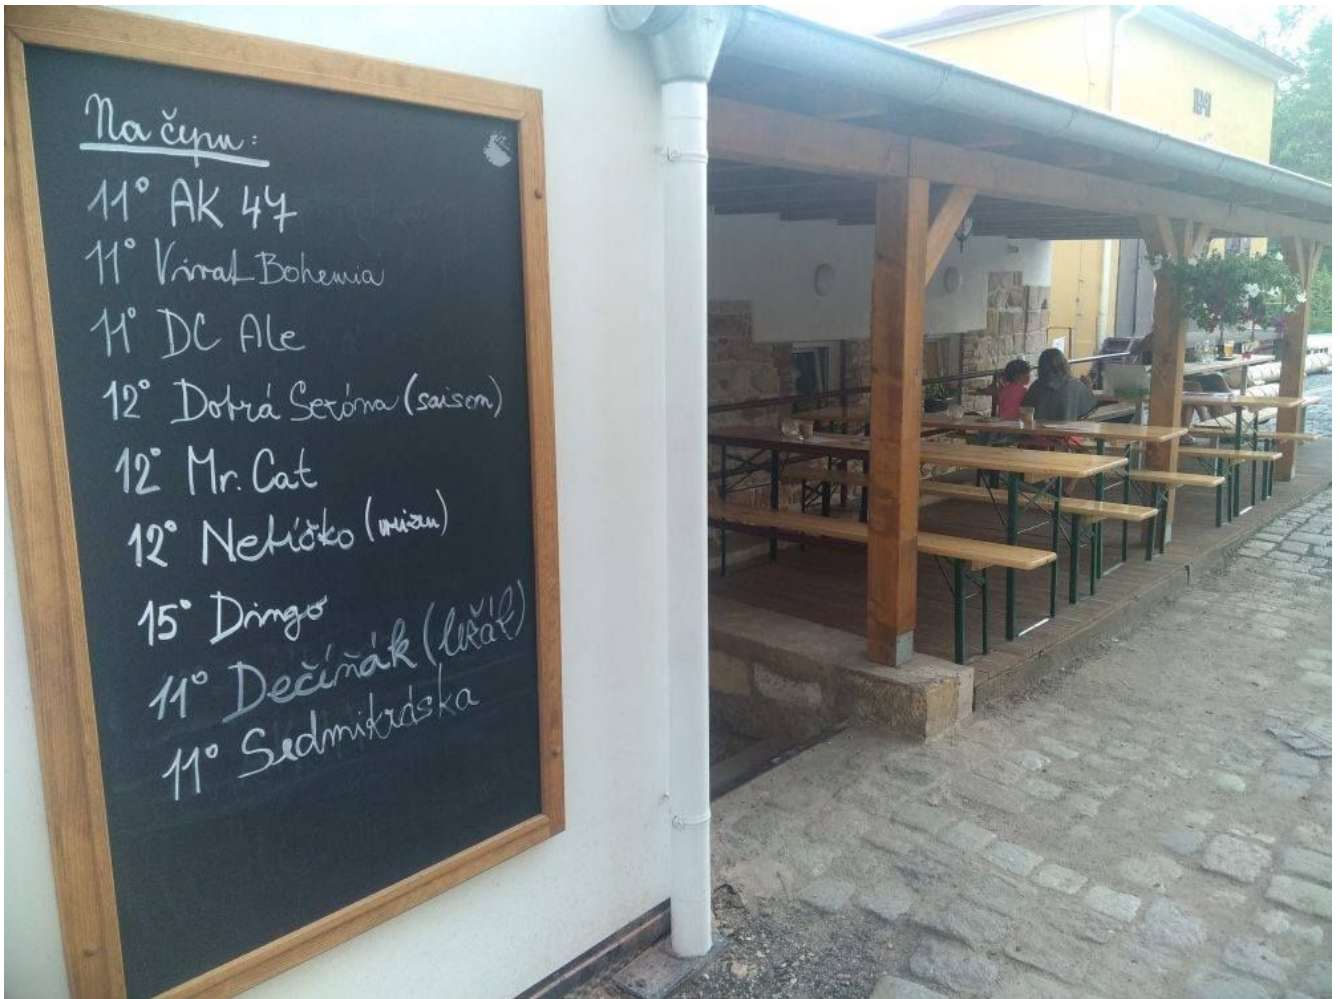 Na čepu:
11° AK 47
11° Virat Bohemia
11° DC Ale
12° Dobrá Sezóna (saison)
12° Mr. Cat
12° Nebíčko (weizen)
15° Dingo
11° Dečíňák (ležák)
11° Sedmikráska